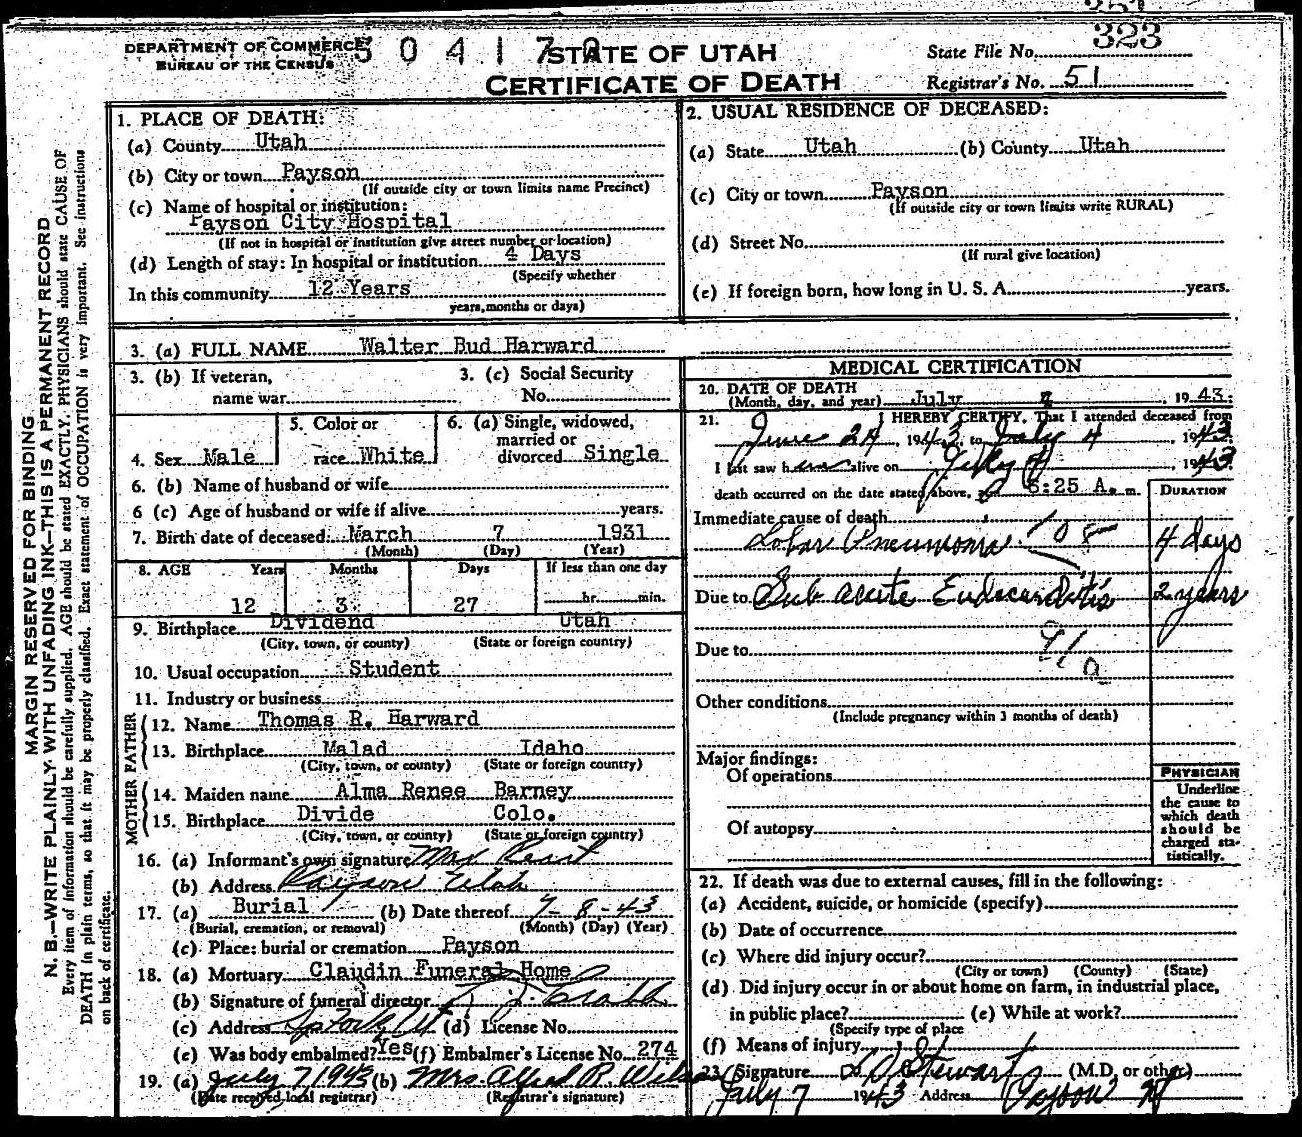 323
DEPARTMENT OF COMMERCE
BUREAU OF THE CENSUS
STATE OF UTAH
CERTIFICATE OF DEATH
State File No.
Registrar's No. 51
MARGIN RESERVED FOR BINDING
N. B.—WRITE PLAINLY WITH UNFADING INK—THIS IS A PERMANENT RECORD
Every item of information should be carefully supplied. AGE should be stated EXACTLY. PHYSICIANS should state CAUSE OF
DEATH in plain terms, so that it may be properly classified. Exact statement of OCCUPATION is very important. See instructions
on back of certificate.
1. PLACE OF DEATH:
(a) County Utah
(b) City or town Payson
(If outside city or town limits name Precinct)
(c) Name of hospital or institution:
Payson City Hospital
(If not in hospital or institution give street number or location)
(d) Length of stay: In hospital or institution 4 Days
(Specify whether
In this community 12 Years
years, months or days)
2. USUAL RESIDENCE OF DECEASED:
(a) State Utah (b) County Utah
(c) City or town Payson
(If outside city or town limits write RURAL)
(d) Street No.
(If rural give location)
(e) If foreign born, how long in U. S. A. years.
3. (a) FULL NAME Walter Bud Harward
3. (b) If veteran,
name war
3. (c) Social Security
No.
4. Sex Male
5. Color or
race White
6. (a) Single, widowed,
married or
divorced Single
6. (b) Name of husband or wife
6 (c) Age of husband or wife if alive years.
7. Birth date of deceased: March 7 1931
(Month) (Day) (Year)
8. AGE Years Months Days If less than one day
12 3 27 hr. min.
9. Birthplace Dividend Utah
(City, town, or county) (State or foreign country)
10. Usual occupation Student
11. Industry or business
FATHER
12. Name Thomas R. Harward
13. Birthplace Malad Idaho
(City, town, or county) (State or foreign country)
MOTHER
14. Maiden name Alma Renee Barney
15. Birthplace Divide Colo.
(City, town, or county) (State or foreign country)
16. (a) Informant's own signature Mrs
(b) Address Payson Utah
17. (a) Burial (b) Date thereof 7-8-43
(Burial, cremation, or removal) (Month) (Day) (Year)
(c) Place: burial or cremation Payson
18. (a) Mortuary Claudin Funeral Home
(b) Signature of funeral director
(c) Address (d) License No.
(e) Was body embalmed? Yes (f) Embalmer's License No. 274
19. (a) July 7 1943 (b) Mrs. Alfred R. Wilson
(Date received local registrar) (Registrar's signature)
MEDICAL CERTIFICATION
20. DATE OF DEATH
(Month, day, and year) July 19 43.
21. I HEREBY CERTIFY, That I attended deceased from
June 24, 1943, to July 4, 1943.
I last saw him alive on July 4 1943.
death occurred on the date stated above, 6:25 A. m.
DURATION
Immediate cause of death
Lobar Pneumonia 108 4 days
Due to Sub acute Endocarditis 2 years
91a
Due to
Other conditions
(Include pregnancy within 3 months of death)
Major findings:
Of operations
Of autopsy
PHYSICIAN
Underline
the cause to
which death
should be
charged sta-
tistically.
22. If death was due to external causes, fill in the following:
(a) Accident, suicide, or homicide (specify)
(b) Date of occurrence
(c) Where did injury occur?
(City or town) (County) (State)
(d) Did injury occur in or about home on farm, in industrial place,
in public place? (e) While at work?
(Specify type of place
(f) Means of injury
23. Signature Stewart (M.D. or other)
July 7 1943 Address Payson